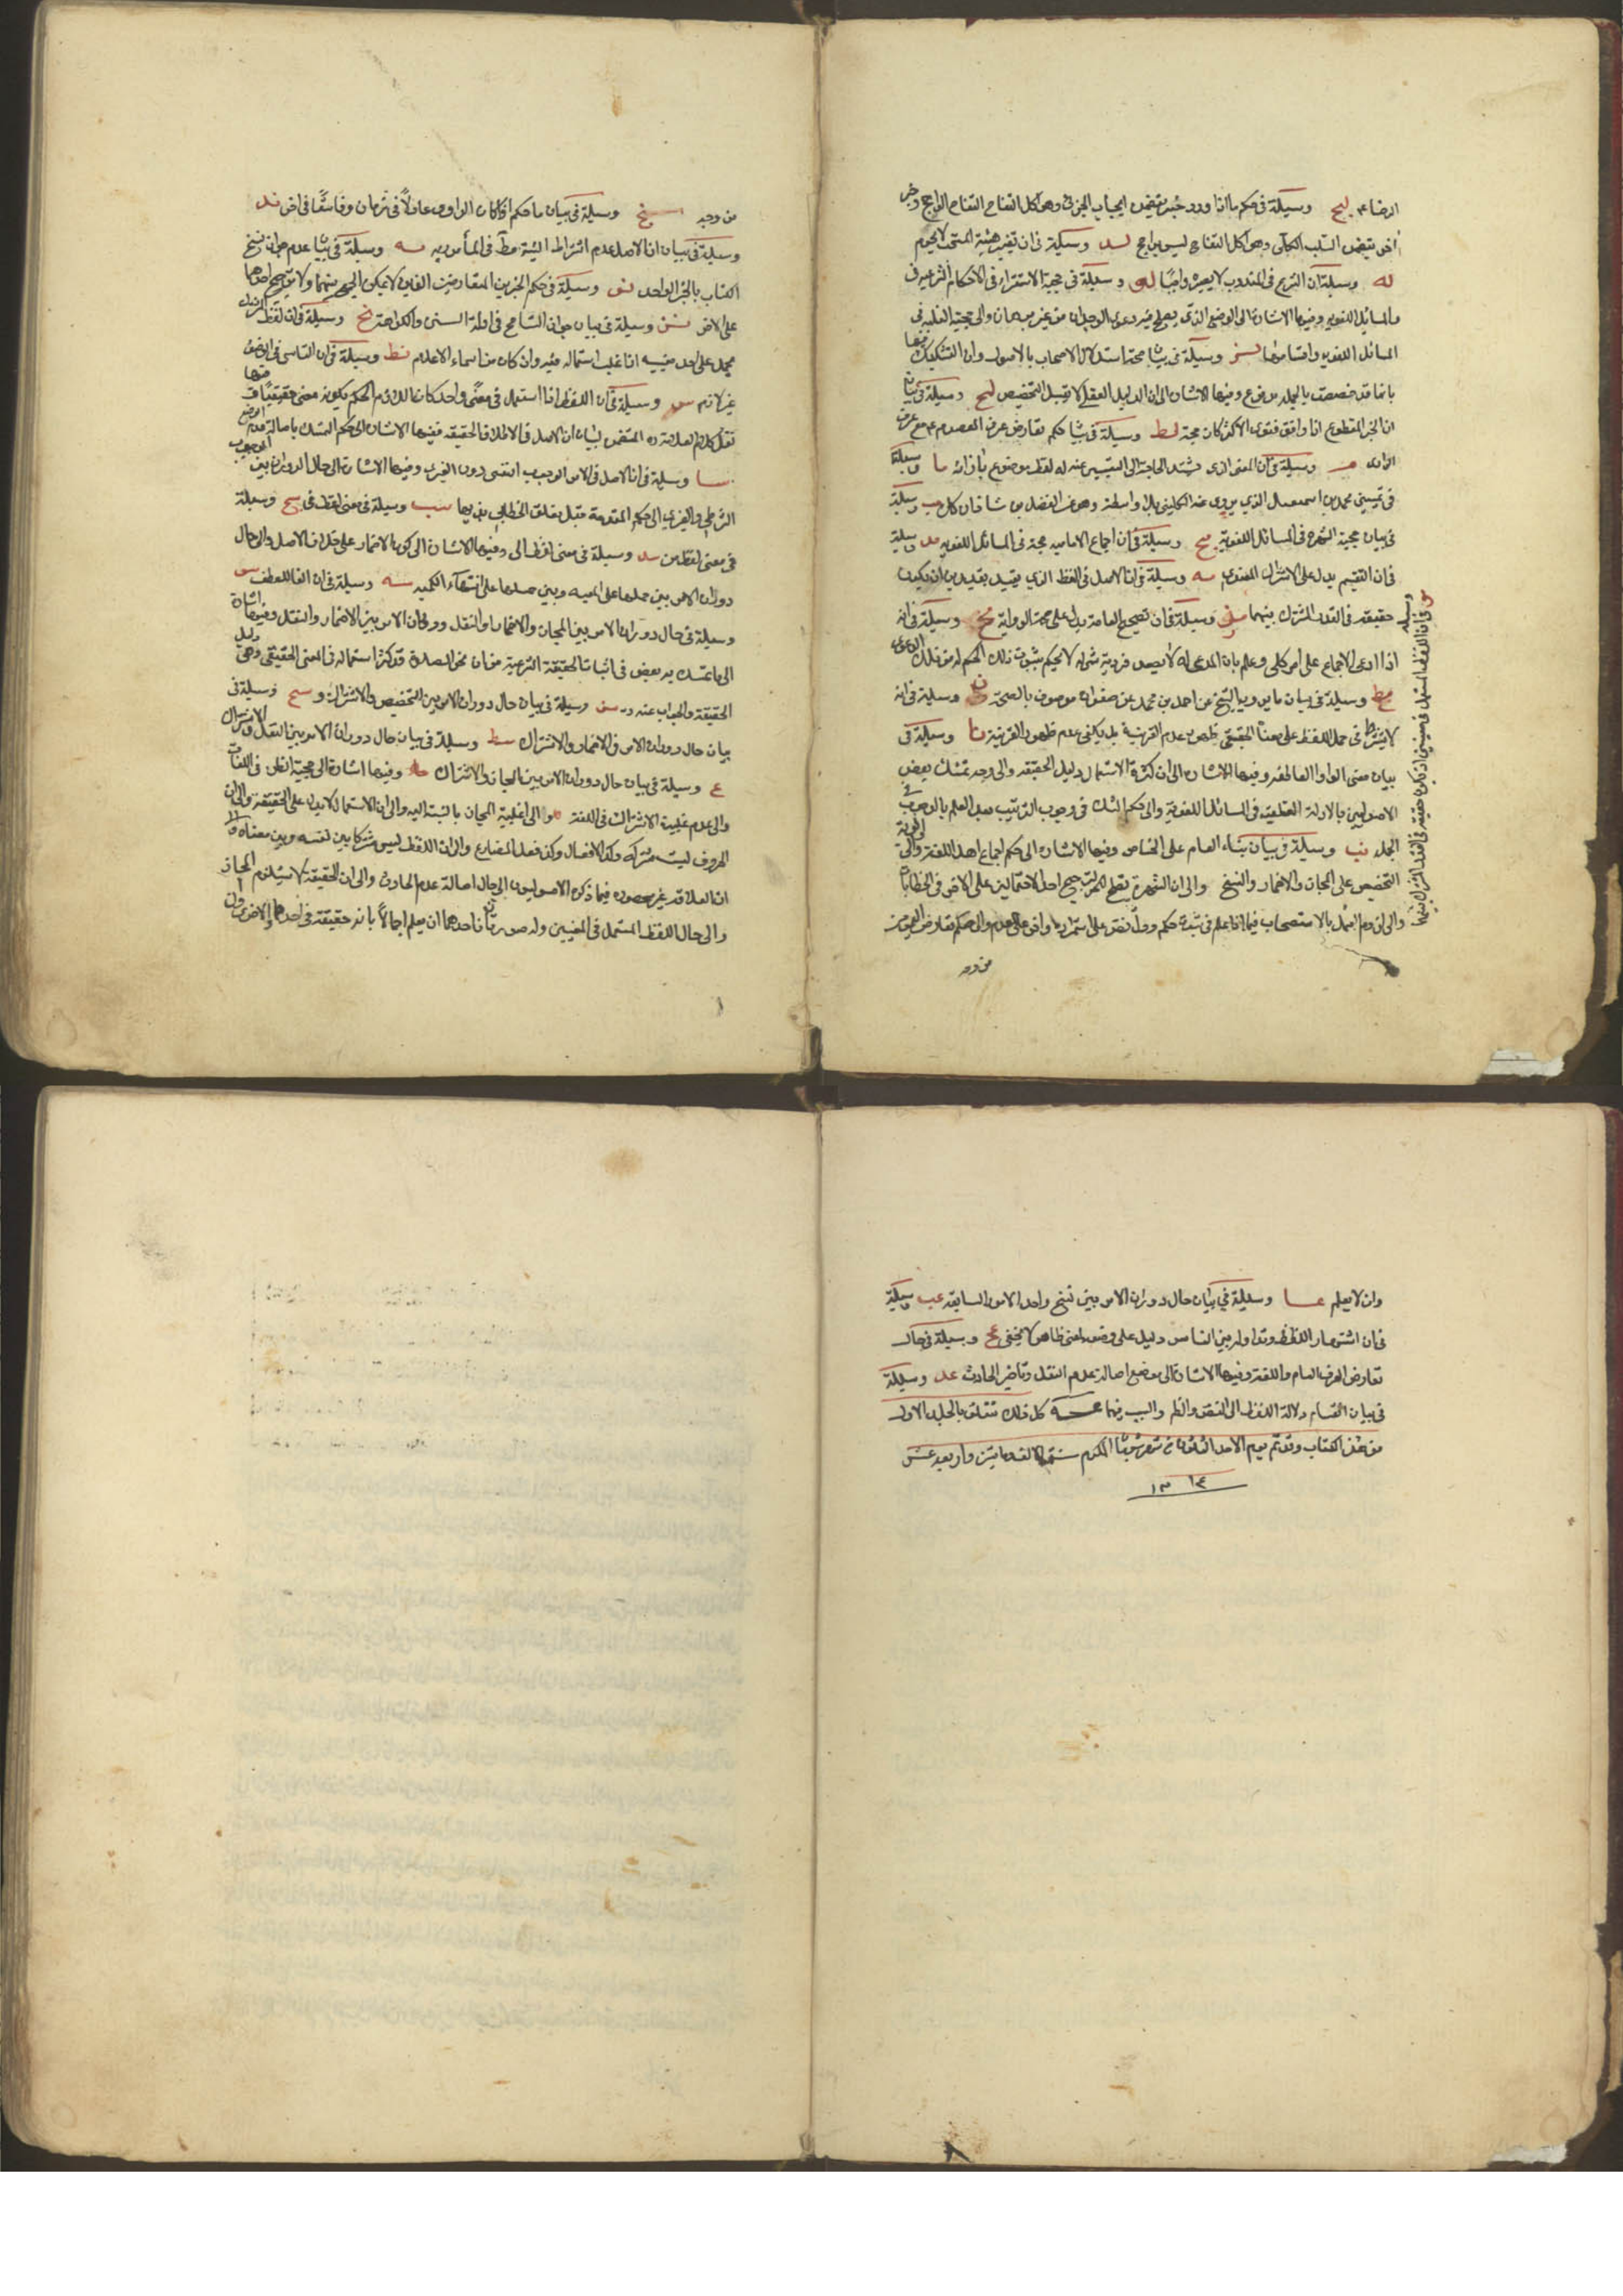 الرضاع لج وسيلة في حكم ما اذا ورد خبر يقيض ايجاب الجزئي وهو اكل التفاح التفاح الراجح وخبر
اخر يقيض السلب الكلى وهو اكل التفاح ليس براجح لد وسيلة في ان تغيير هيئة المستحب لا يحرم
له وسيلة ان الشرع في المندوب لا يصير واجبا لو وسيلة في حجية الاستقراء في الاحكام الشرعيه وفى
والمسائل اللغويه وفيها الاشارة الى الوضع الذي يصلح فيه دعوى الوجدان من غير برهان والى حجية الغلبه فى
المسائل اللغويه واقسامها لز وسيلة في بيان صحة استدلال الاصحاب بالاصول وان التشكيك فيها
بانها قد خصصت بالمجمله مدفوع وفيها الاشارة الى ان الدليل العقلى لا يقبل التخصيص لح وسيلة في بيان
ان الخبر المقطوع اذا وافق فتوى الاكثر كان حجة لط وسيلة في بيان حكم تعارض عرف المعصوم ع مع عرف
الراوى م وسيلة في ان المعنى الذى يشتد الحاجة الى التعبير عنه له لفظ موضوع بازائه ما وسيلة
فى تميز محمد بن اسمعيل الذي يروى عنه الكلينى بلا واسطة وهو عن الفضل بن شاذان كل مب وسيلة
في بيان حجية الشهرة في المسائل اللغوية مج وسيلة في ان اجماع الاماميه حجة في المسائل اللغويه مد وسيلة
فى ان التقسيم يدل على الاشتراك المعنوى مه وسيلة في ان الاصل في اللفظ الذي يقيد بقيدين ان يكون
حقيقه في القدر المشترك بينهما مز وسيلة في ان تصحيح العلامة يدل على صحة الرواية مح وسيلة في انه
اذا ادعى الاجماع على امر كلى وعلم بان المدعى له لا يصدر فردية شىء له لا يحكم بثبوت ذلك الحكم له من تلك الدعوى
مط وسيلة في بيان ما يرويه الشيخ عن احمد بن محمد عن صفوان موصوف بالصحة ن وسيلة في انه
لا يشترط فى حمل اللفظ على معناه الحقيقى ظهور عدم القرينة بل يكفى عدم ظهور القرينة نا وسيلة في
بيان معنى الواو العاطفه وفيها الاشارة الى ان كثرة الاستعمال دليل الحقيقه والى وجه تمسك بعض
الاصوليين بالادلة العقليه في المسائل اللغوية والى حكم الشك في وجوب الترتيب بعد العلم بالوجوب فى
الجمله نب وسيلة في بيان بناء العام على الخاص وفيها الاشارة الى حكم اجماع اهل اللغة والى اولوية
التخصيص على المجاز والاضمار والنسخ والى ان الشهرة يصلح لترجيح احد الاحتمالين على الاخر في الخطابات
والى لزوم العمل بالاستصحاب فيما اذا علم في شريعة حكم ودل نص على استمراره واخر على العدم والى حكم تعارض العموم
من وجه
وسيلة في ان اللفظ اذا استعمل في معنيين او اكثر كان حقيقه فى القدر المشترك بينهما
من وجه نج وسيلة في بيان ما حكم اذا كان الراوى عادلاً في زمان وفاسقًا في اخر ند
وسيلة في بيان ان الاصل عدم اشتراط النية مطلقا في المأمور به نه وسيلة في بيان عدم جواز نسخ
الكتاب بالخبر الواحد نو وسيلة في حكم الخبرين المتعارضين الذين لا يمكن الجمع بينهما ولا ترجيح احدهما
على الاخر نز وسيلة في بيان جواز التسامح في ادلة السنن والكراهة نح وسيلة في ان لفظ المشترك
يحمل على احد معنييه اذا غلب استعماله فيه وان كان من اسماء الاعلام نط وسيلة في ان التاسى في الوضوء
غير لازم س وسيلة في ان اللفظ اذا استعمل في معنًى واحد كان اللازم الحكم بكونه معنى حقيقيًا وفيها
نقل كلام العلامة ره المتضمن لبيان ان الاصل فى الاطلاق الحقيقه ففيها الاشارة الى حكم التمسك باصالة عدم الوضع
سا وسيلة في ان الاصل في الامر الوجوب النفسى دون الغيرى وفيها الاشارة الى حال الدوران بين الوجوب
الشرطى والغيرى والى حكم المقدمة قبل تعلق الخطاب بذيها سب وسيلة في معنى لفظ فى سج وسيلة
فى معنى لفظ من سد وسيلة في معنى لفظ الى وفيها الاشارة الى كون الاضمار على خلاف الاصل والى حال
دوران الامر بين حملها على المعيه وبين حملها على انتهاء الكميه سه وسيلة في ان الفا للعطف سو
وسيلة في حال دوران الامر بين المجاز والاضمار والنقل ودوران الامر بين الاضمار والنقل وفيها اشارة
الى ما تمسك به بعض في اثبات الحقيقة الشرعية من ان نحو الصلاة قد كثر استعماله في المعنى الحقيقى وهى دليل
الحقيقة والجواب عنه ره سز وسيلة في بيان حال دوران الامر بين التخصيص والاشتراك و سح وسيلة فى
بيان حال دوران الامر فى الاضمار والاشتراك سط وسيلة في بيان حال دوران الامر بين النقل والاشتراك
ع وسيلة في بيان حال دوران الامر بين المجاز والاشتراك وفيها اشارة الى حجية الظن في اللغات
والى عدم غلبة الاشتراك في اللغة والى اغلبية المجاز بالنسبة اليه والى ان الاستعمال لا يدل على الحقيقة والى ان
الحروف ليست مشتركة وكذا الافعال وكذا فعل المضارع والى ان اللفظ ليس مشتركا بين نفسه وبين معناه والى
ان العلاقه غير محصوره فيما ذكره الاصوليون والى حال اصالة عدم الحادث والى ان الحقيقة لا يستلزم المجاز
والى حال اللفظ المستعمل في المعنيين وله صورتان احدهما ان يعلم اجمالاً بانه حقيقة في احدهما والاخرى
وان لا يعلم عا وسيلة في بيان حال دوران الامر بين نسخ واحد الامور السابقه عب وسيلة
فى ان اشتهار اللفظ وتداوله بين الناس دليل على وضعه لمعنى ظاهر لا يخفى عج وسيلة في حال
تعارض العرف العام واللغة وفيها الاشارة الى موضع اصالة عدم النقل وتاخير الحادث عد وسيلة
فى بيان انقسام دلالة اللفظ الى النص والظاهر والسبب فيهما عه كل ذلك تتعلق بالجلد الاول
من هذا الكتاب وقد تم يوم الاحد الثلثون شهر شعبان المكرم سنة الف وماتين واربعه عشر
١٢١٤